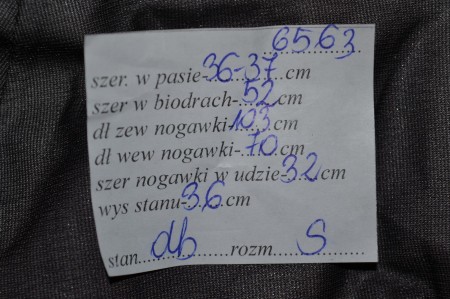 6563
szer. w pasie-36-37cm
szer w biodrach-52cm
dł zew nogawki-103cm
dł wew nogawki-70cm
szer nogawki w udzie-32cm
wys stanu-36cm
stan db rozm. S